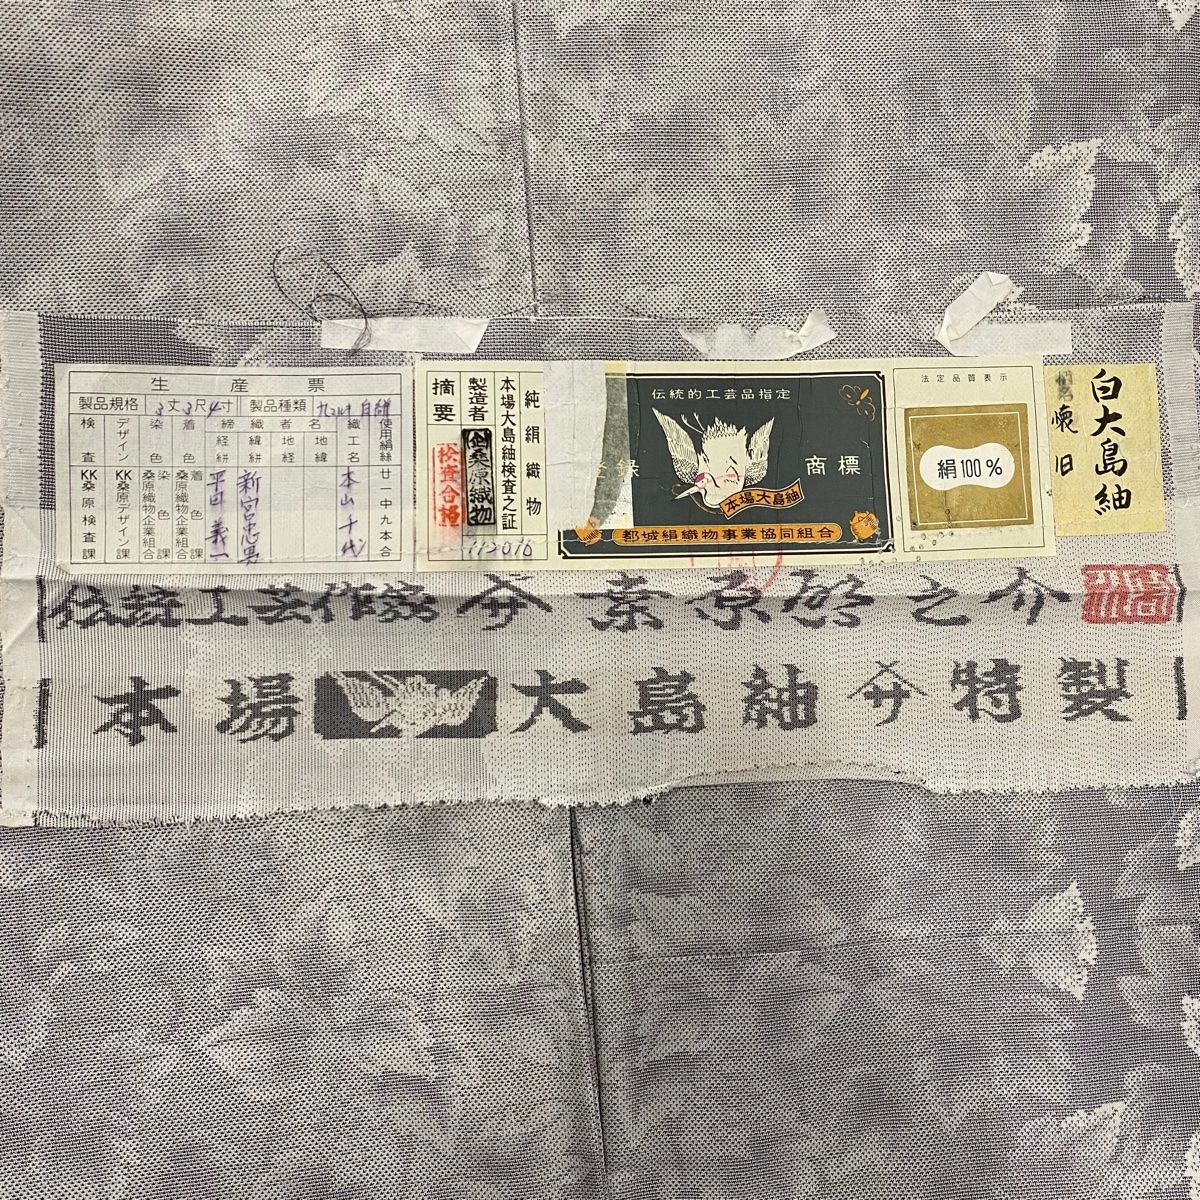 生産票
製品規格 3丈3尺4寸 製品種類 九マルキ 白緋
検査 KK桑原検査課
デザイン KK桑原デザイン課
染色 桑原織物企業組合 染色課
着色 桑原織物企業組合 着色課
締経緋 平田義一
織緯緋
者地経
名地緯
織工名 本山千代
使用絹糸 廿一中九本合
新宮忠男
純絹織物
本場大島紬検査之証
製造者 桑原織物
摘要 検査合格
112016
伝統的工芸品指定
登録 商標
本場大島紬
都城絹織物事業協同組合
法定品質表示
絹100%
白大島紬
懐旧
伝統工芸作家 桑原啓之介
本場 大島紬 特製